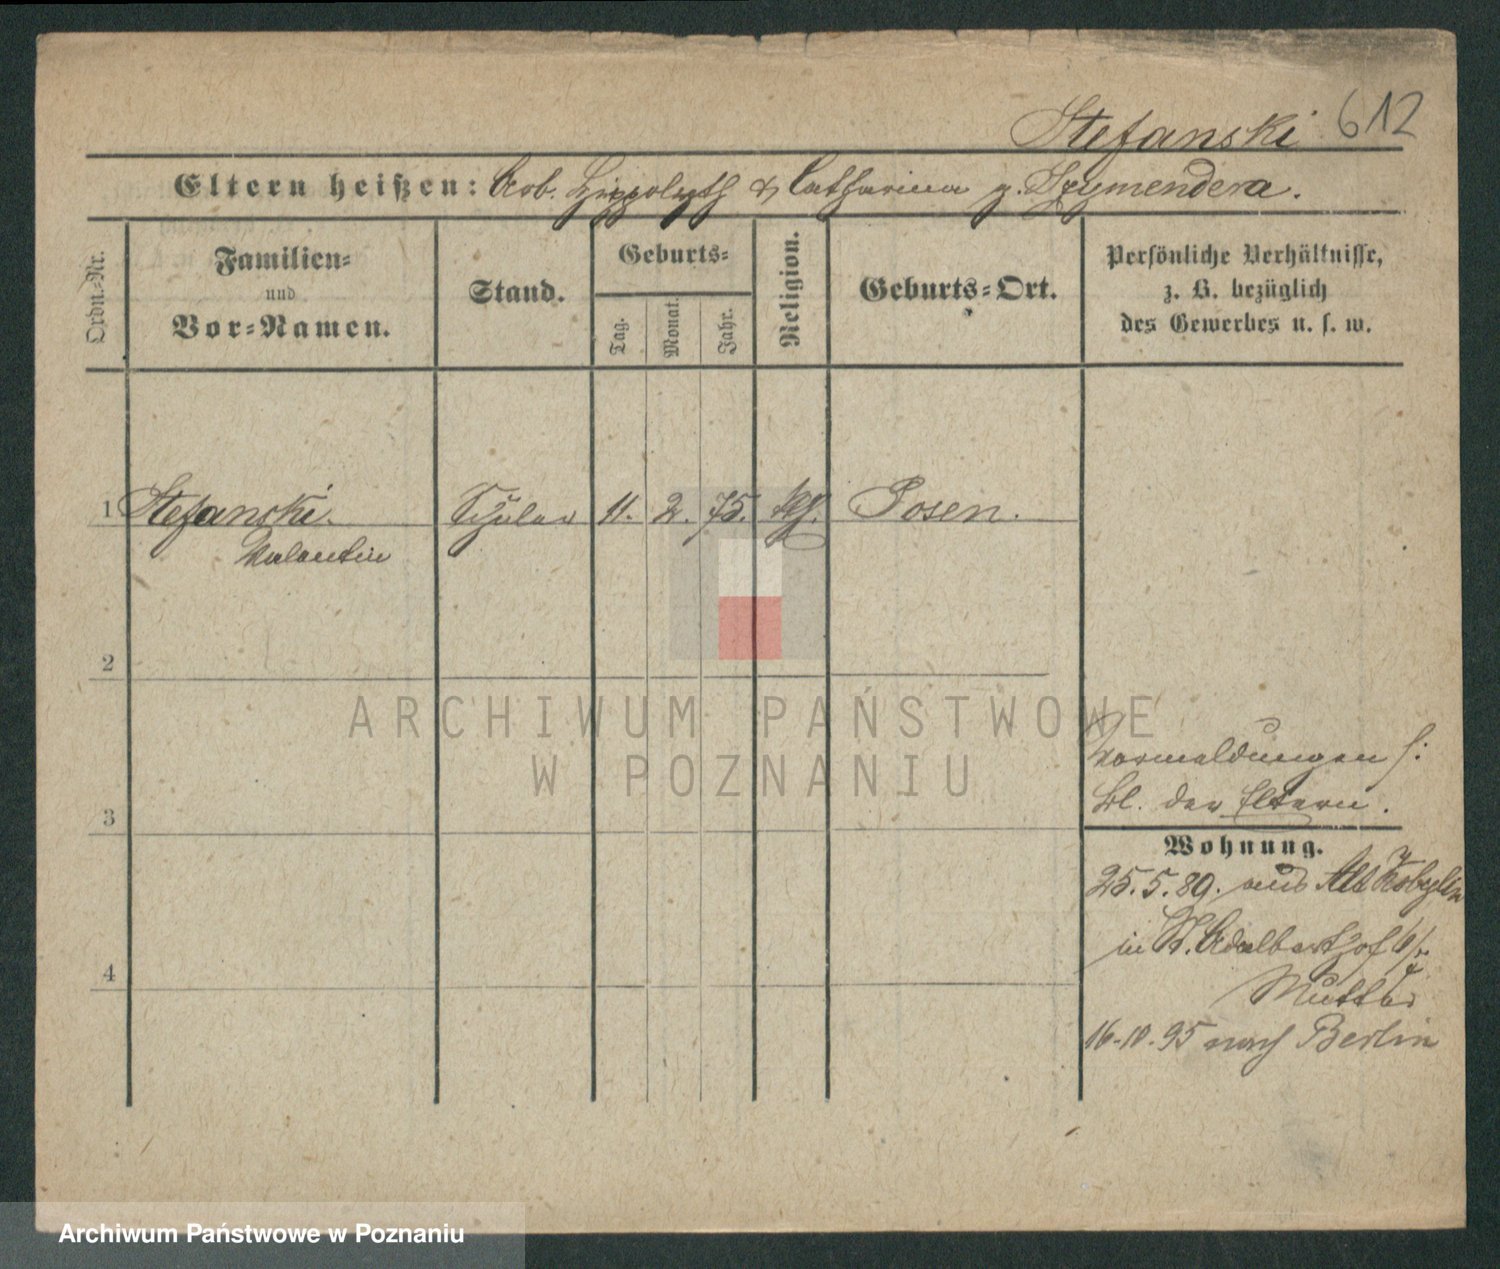 Stefanski 612
Eltern heißen: Arb. Hippolyth & Catharina g. Szymendera.
Ordn.-Nr.
Familien-
und
Vor-Namen.
Stand.
Geburts-
Tag.
Monat.
Jahr.
Religion.
Geburts-Ort.
Persönliche Verhältnisse,
z. B. bezüglich
des Gewerbes u. s. w.
1 Stefanski. Schüler 11. 2. 75. kth. Posen.
Valentin
2
ARCHIWUM PAŃSTWOWE
W POZNANIU
Vormeldungen s:
Bl. der Eltern.
3
Wohnung.
25.5.89. aus Alt Kobylin
in St. Adalberthof
4
Mutter
16.10.95 nach Berlin
Archiwum Państwowe w Poznaniu